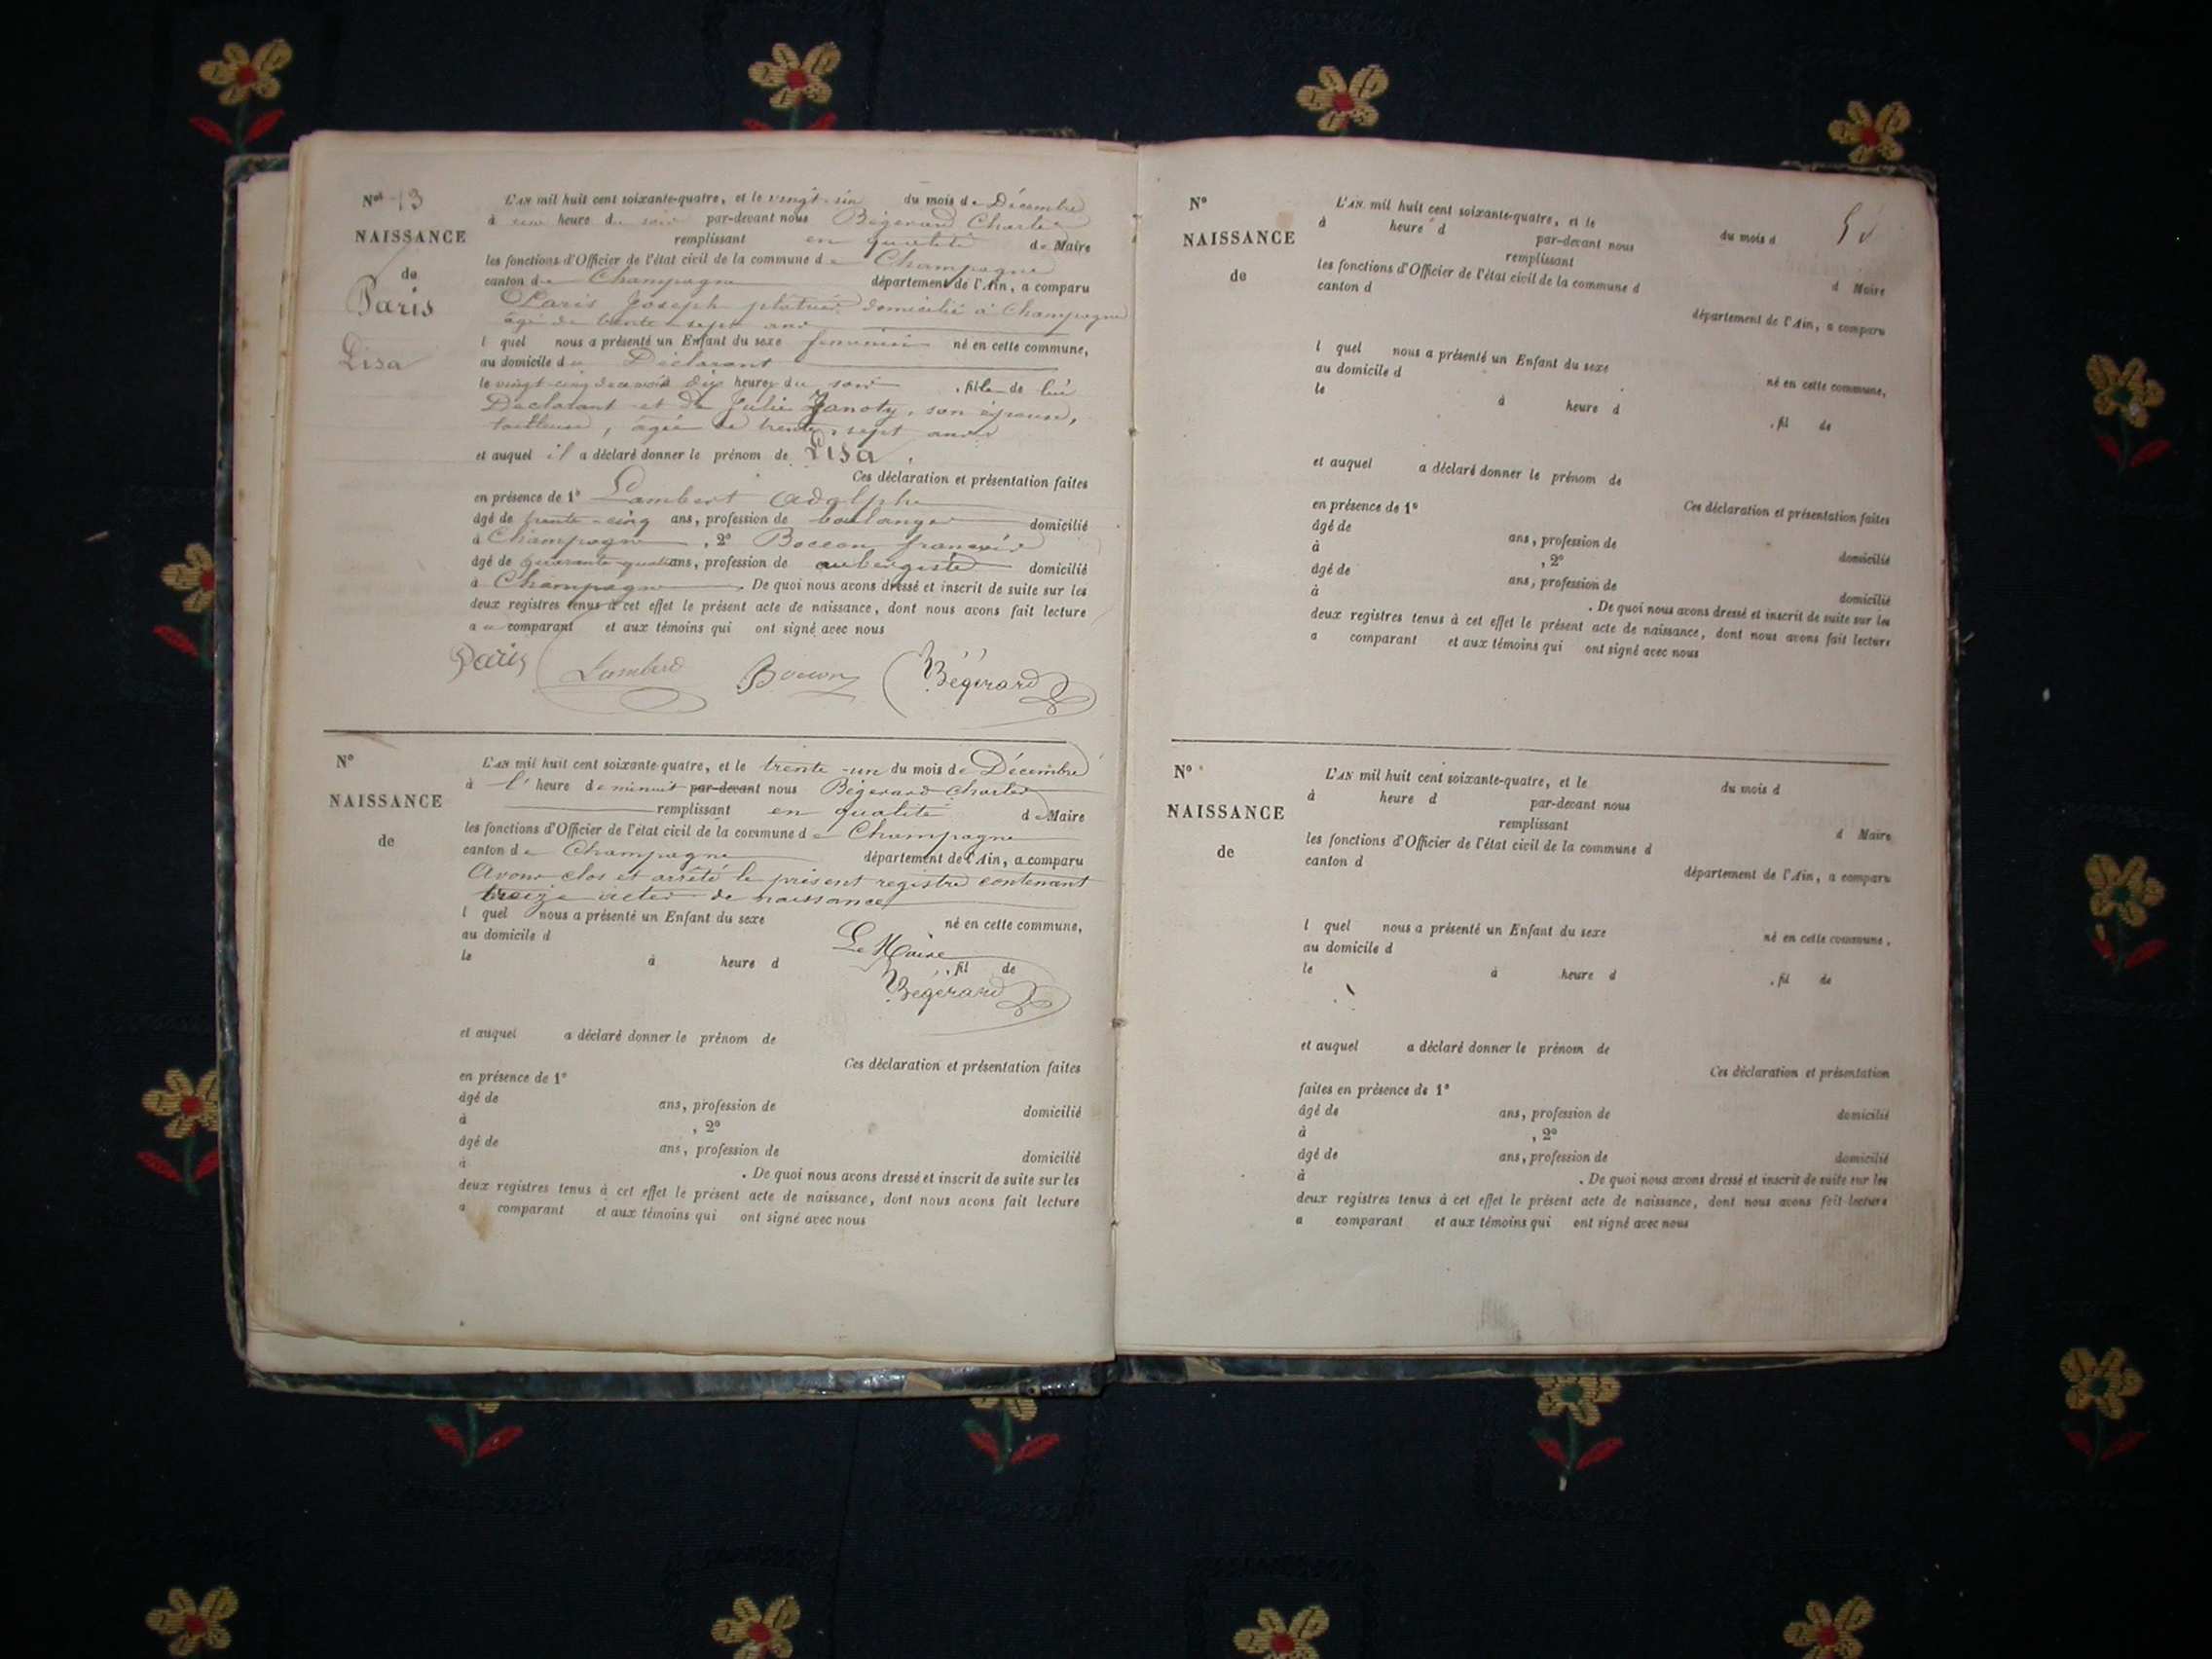 N° 13
NAISSANCE
de
Paris
Lisa
L'AN mil huit cent soixante-quatre, et le vingt-six du mois de Décembre
à une heure du soir par-devant nous Bégerard Charles
remplissant en qualité de Maire
les fonctions d'Officier de l'état civil de la commune de Champagne
canton de Champagne département de l'Ain, a comparu
Paris Joseph platrier domicilié à Champagne
âgé de trente-sept ans
l quel nous a présenté un Enfant du sexe féminin né en cette commune,
au domicile du Déclarant
le vingt-cinq decembre à dix heures du soir, fille de lui
Declarant et de Julie Janoty, son épouse,
tailleuse, âgée de trente-sept ans
et auquel il a déclaré donner le prénom de Lisa.
Ces déclaration et présentation faites
en présence de 1° Lambert Adolphe
âgé de trente-cinq ans, profession de boulanger domicilié
à Champagne, 2° Boccon françois
âgé de quarante-quatre ans, profession de aubergiste domicilié
à Champagne. De quoi nous avons dressé et inscrit de suite sur les
deux registres tenus à cet effet le présent acte de naissance, dont nous avons fait lecture
au comparant et aux témoins qui ont signé avec nous
Paris Lambert Boccon Bégerard
N°
NAISSANCE
de
L'AN mil huit cent soixante-quatre, et le trente-un du mois de Décembre
à l'heure de minuit par-devant nous Bégerard Charles
remplissant en qualité de Maire
les fonctions d'Officier de l'état civil de la commune de Champagne
canton de Champagne département de l'Ain, a comparu
Avons clos et arrêté le présent registre contenant
treize actes de naissance
l quel nous a présenté un Enfant du sexe né en cette commune,
au domicile d
Le Maire
le à heure d , fil de
Bégerard
et auquel a déclaré donner le prénom de
Ces déclaration et présentation faites
en présence de 1°
âgé de ans, profession de domicilié
à , 2°
âgé de ans, profession de domicilié
à . De quoi nous avons dressé et inscrit de suite sur les
deux registres tenus à cet effet le présent acte de naissance, dont nous avons fait lecture
a comparant et aux témoins qui ont signé avec nous
N°
NAISSANCE
de
L'AN mil huit cent soixante-quatre, et le du mois d
à heure d par-devant nous
remplissant d Maire
les fonctions d'Officier de l'état civil de la commune d
canton d département de l'Ain, a comparu
l quel nous a présenté un Enfant du sexe né en cette commune,
au domicile d
le à heure d , fil de
et auquel a déclaré donner le prénom de
Ces déclaration et présentation faites
en présence de 1°
âgé de ans, profession de domicilié
à , 2°
âgé de ans, profession de domicilié
à . De quoi nous avons dressé et inscrit de suite sur les
deux registres tenus à cet effet le présent acte de naissance, dont nous avons fait lecture
a comparant et aux témoins qui ont signé avec nous
N°
NAISSANCE
de
L'AN mil huit cent soixante-quatre, et le du mois d
à heure d par-devant nous
remplissant d Maire
les fonctions d'Officier de l'état civil de la commune d
canton d département de l'Ain, a comparu
l quel nous a présenté un Enfant du sexe né en cette commune,
au domicile d
le à heure d , fil de
et auquel a déclaré donner le prénom de
Ces déclaration et présentation
faites en présence de 1°
âgé de ans, profession de domicilié
à , 2°
âgé de ans, profession de domicilié
à . De quoi nous avons dressé et inscrit de suite sur les
deux registres tenus à cet effet le présent acte de naissance, dont nous avons fait lecture
a comparant et aux témoins qui ont signé avec nous